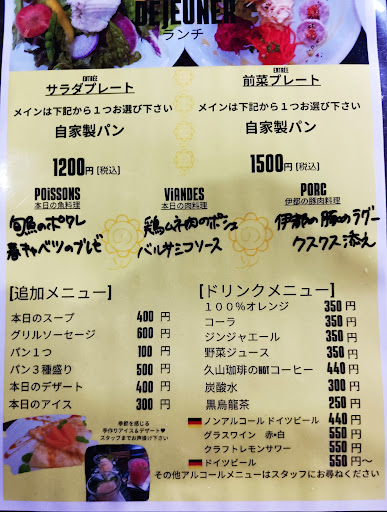 DÉJEUNER
ランチ
ENTRÉE
サラダプレート
メインは下記から１つお選び下さい
自家製パン
1200円 [税込]
ENTRÉE
前菜プレート
メインは下記から１つお選び下さい
自家製パン
1500円 [税込]
POiSSONS
本日の魚料理
旬魚のポワレ
春キャベツのブレゼ
ViANDES
本日の肉料理
鶏ムネ肉のポシェ
バルサミコソース
PORC
伊都の豚肉料理
伊都の豚のラグー
クスクス添え
[追加メニュー]
本日のスープ 400 円
グリルソーセージ 600 円
パン１つ 100 円
パン３種盛り 500 円
本日のデザート 400 円
本日のアイス 300 円
季節を感じる
手作りアイス＆デザート♥
スタッフまでお声掛け下さい
[ドリンクメニュー]
１００％オレンジ 350 円
コーラ 350 円
ジンジャエール 350 円
野菜ジュース 350 円
久山珈琲のHOTコーヒー 440 円
炭酸水 300 円
黒烏龍茶 250 円
ノンアルコールドイツビール 440 円
グラスワイン 赤•白 550 円
クラフトレモンサワー 550 円
ドイツビール 550 円～
その他アルコールメニューはスタッフにお尋ねください